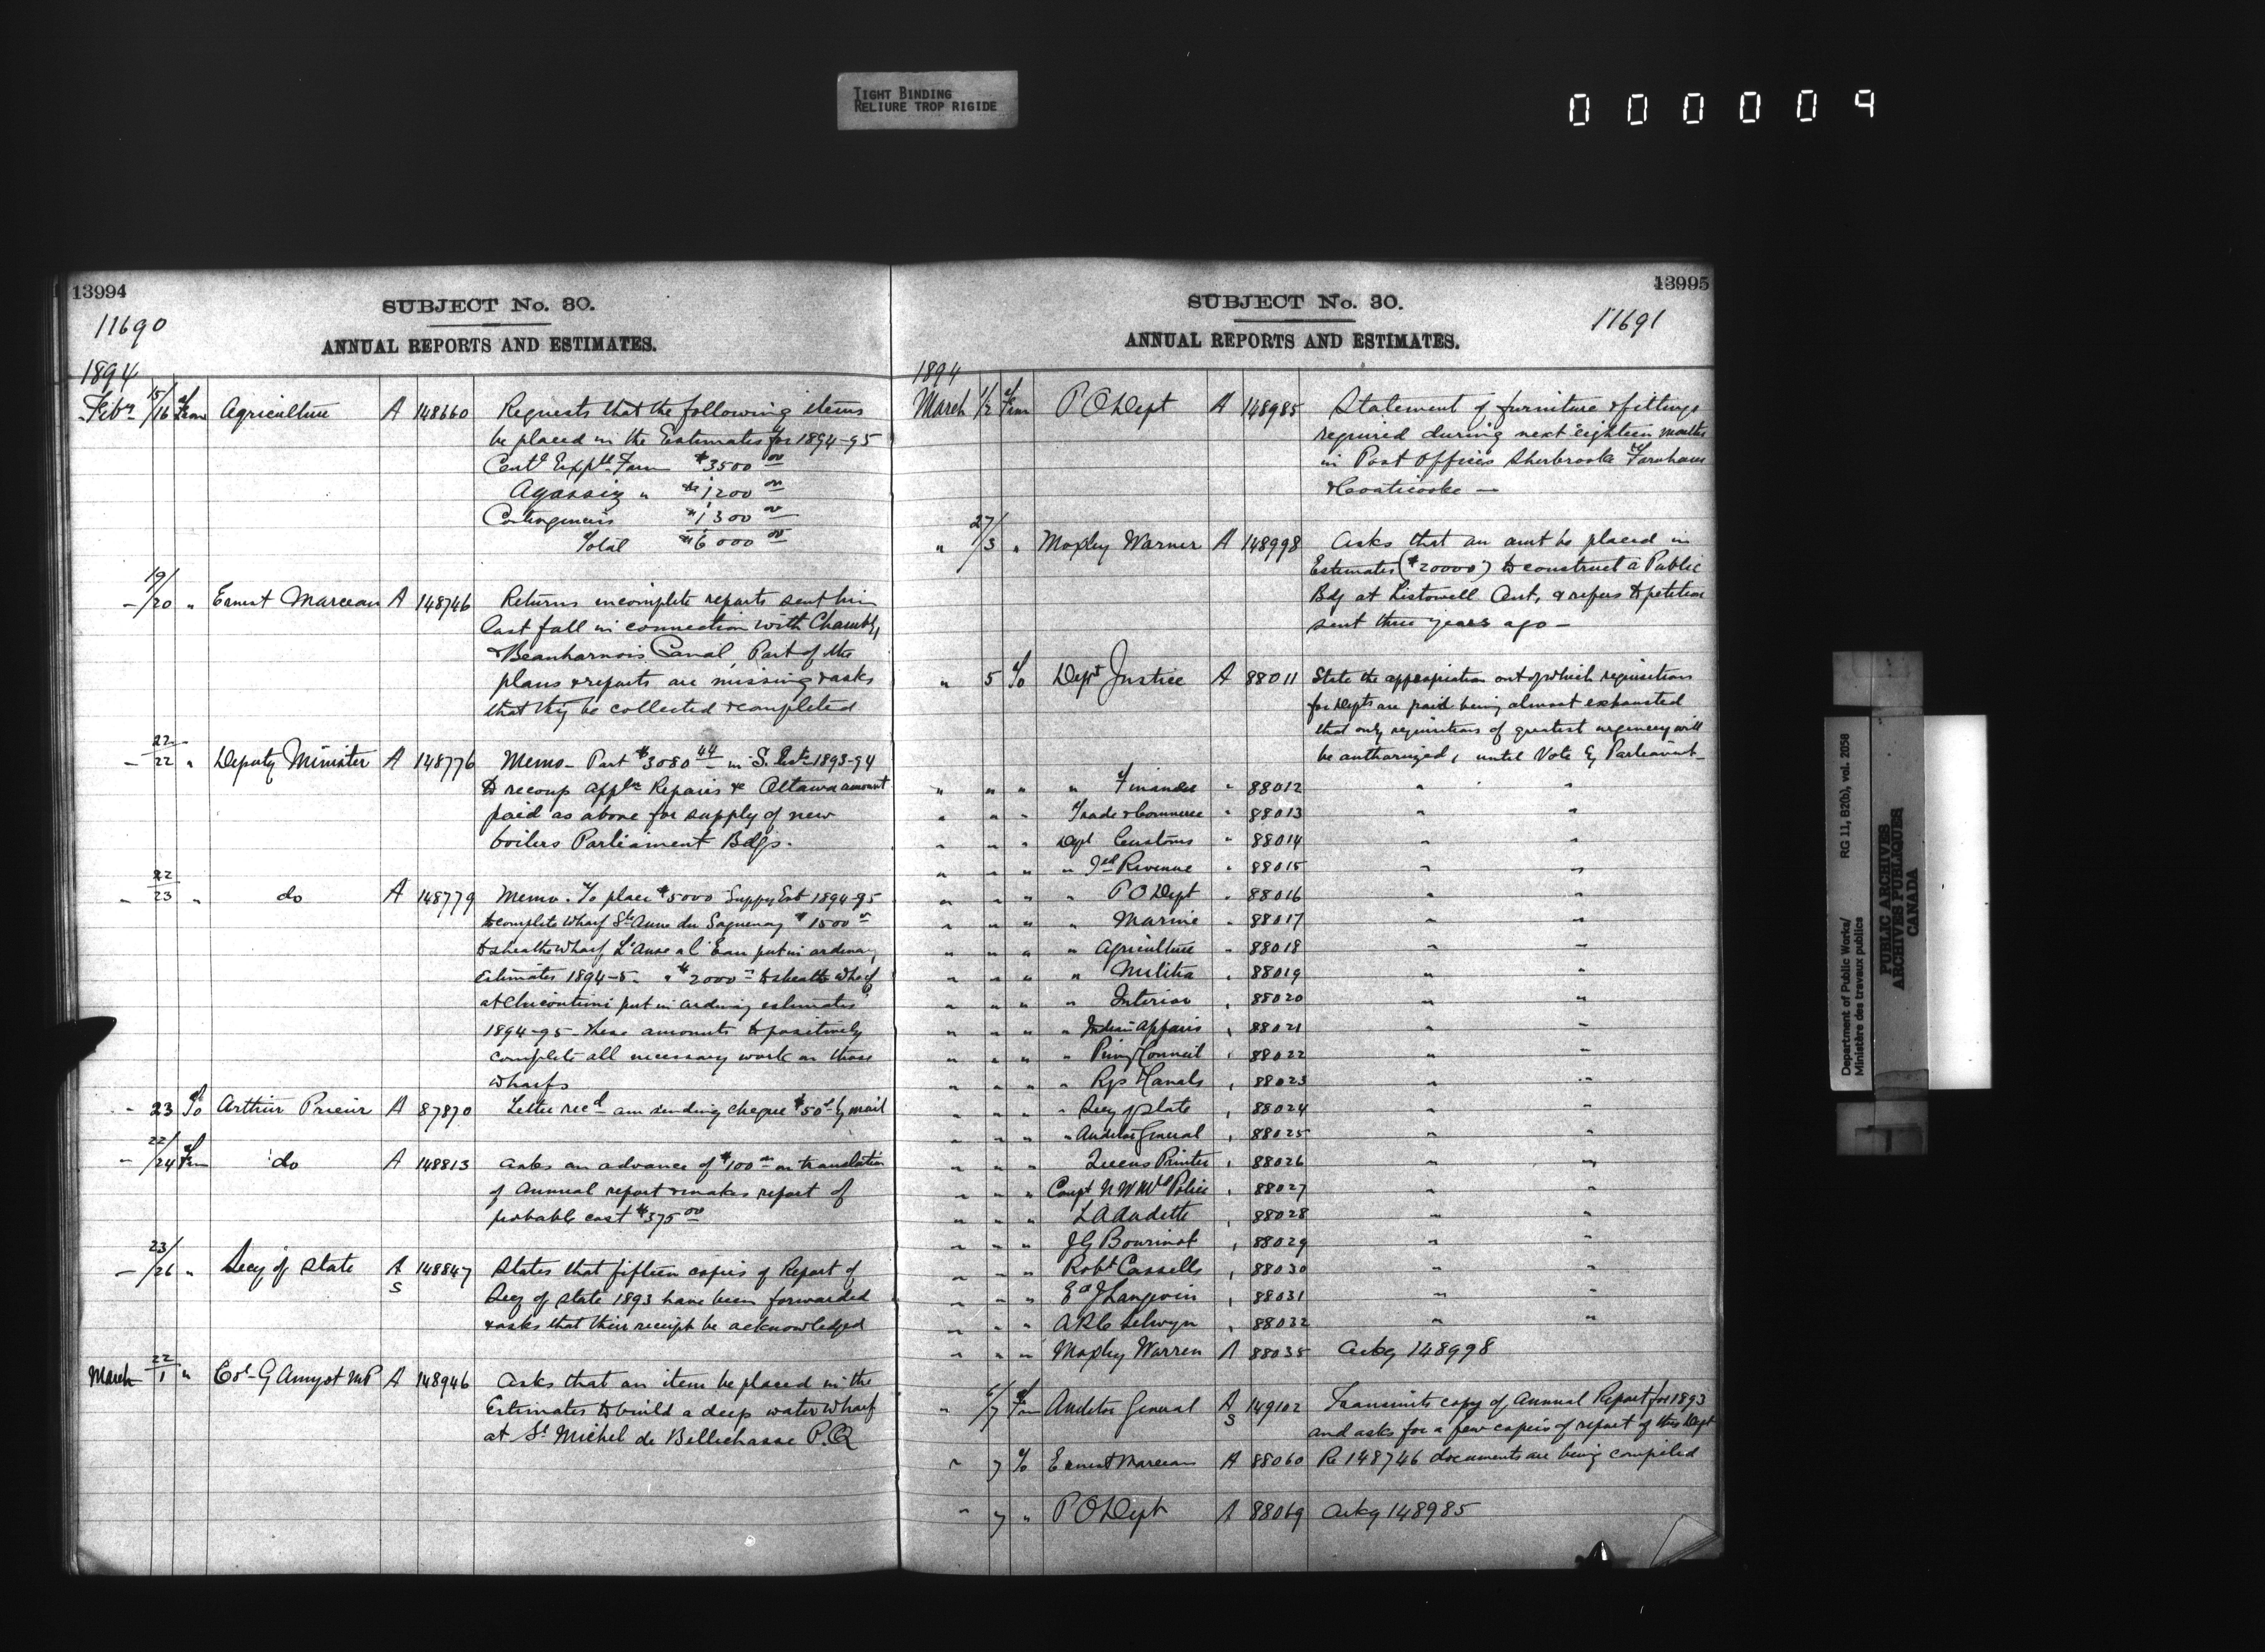 TIGHT BINDING
RELIURE TROP RIGIDE
000009
13994
SUBJECT No. 30.
11690
ANNUAL REPORTS AND ESTIMATES.
1894
Feby 15/16 From Agriculture A 148660 Requests that the following items
be placed in the Estimates for 1894-95
Centl Exptl Farm $3500 00
Agassiz " $1200 00
Contingencies $1300 00
Total $6000 00
- 19/20 " Ernest Marceau A 148746 Returns incomplete reports sent him
last fall in connection with Chambly
& Beauharnois Canal, Part of the
plans & reports are missing & asks
that they be collected & completed
- 22/22 " Deputy Minister A 148776 Memo - Part $3080 44 in S. Ests 1893-94
to recoup appln Repairs &c Ottawa amount
paid as above for supply of new
boilers Parliament Bdgs.
- 22/23 " do A 148779 Memo. To place $5000 Suppy Est 1894-95
to complete wharf Ste Anne du Saguenay $1500
to sheath wharf L'Anse a l'Eau put in ordinary
Estimates 1894-5 - & $2000 to sheath wharf
at Chicoutimi put in ordinary estimates
1894-95 - these amounts to positively
complete all necessary work on those
wharfs
- 23 To Arthur Prieur A 87870 Letter recd am sending cheque $50 by mail
- 22/24 From do A 148813 asks an advance of $100 on translation
of Annual report & makes report of
probable cost $375 00
- 23/26 " Secy of State A S 148847 States that fifteen copies of Report of
Secy of State 1893 have been forwarded
& asks that their receipt be acknowledged
March 22/1 " Col- G Amyot MP A 148946 Asks that an item be placed in the
Estimates to build a deep water wharf
at St Michel de Bellechasse P.Q
13995
SUBJECT No. 30.
11691
ANNUAL REPORTS AND ESTIMATES.
1894
March 1/2 From P O Dept A 148985 Statement of furniture & fittings
required during next eighteen months
in Post Offices Sherbrooke Farnham
& Coaticooke -
" 27/3 " Moxley Warner A 148998 Asks that an amt be placed in
Estimates ($20000) to construct a Public
Bdg at Listowell Ont, & refers to petition
sent three years ago -
" 5 To Dept Justice A 88011 State the appropriation out of which requisitions
for Depts are paid being almost exhausted
that only requisitions of greatest urgency will
be authorized, until Vote by Parliament -
" " " " Finance " 88012 " "
" " " Trade & Commerce " 88013 " "
" " " Dept Customs " 88014 " "
" " " " Ild Revenue " 88015 " "
" " " " P O Dept " 88016 " "
" " " " Marine " 88017 " "
" " " " Agriculture " 88018 " "
" " " " Militia " 88019 " "
" " " " Interior " 88020 " "
" " " " Indian Affairs " 88021 " "
" " " " Privy Council " 88022 " "
" " " " Rys & Canals " 88023 " "
" " " " Secy of State " 88024 " "
" " " " Auditor General " 88025 " "
" " " Queens Printer " 88026 " "
" " " Compt N W Mtd Police " 88027 " "
" " " L A Audette " 88028 " "
" " " J G Bourinot " 88029 " "
" " " Robt Cassells " 88030 " "
" " " Ed J Langevin " 88031 " "
" " " A R C Selwyn " 88032 " "
" " " Moxley Warren A 88035 Ackg 148998
" 6/7 From Auditor General A S 149102 Transmits copy of Annual Report for 1893
and asks for a few copies of report of this Dept
" 7 To Ernest Marceau A 88060 Re 148746 documents are being compiled
" 7 " P O Dept A 88069 Ackg 148985
Department of Public Works/ RG 11, B2(b), vol. 2058
Ministère des travaux publics
PUBLIC ARCHIVES
ARCHIVES PUBLIQUES
CANADA